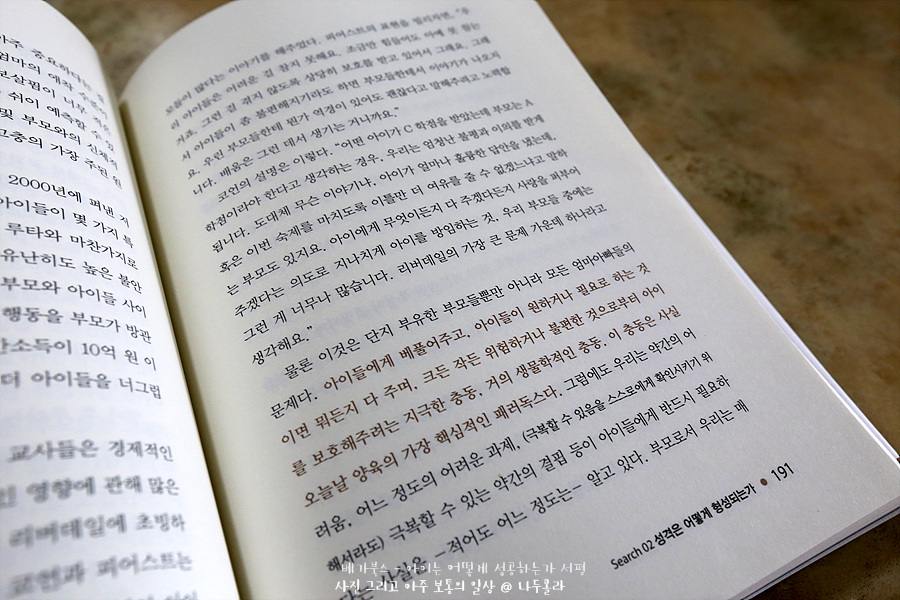 아주 중요하다는
엄마의 애착 수준
보살핌이 너무
쉬이 예측할 수
및 부모와의 신체적
고층의 가장 주된 원
2000년에 펴낸 저
아이들이 몇 가지 특
루타와 마찬가지로
유난히도 높은 불안
부모와 아이들 사이
행동을 부모가 방관
간소득이 10억 원 이
더 아이들을 너그럽
교사들은 경제적인
인 영향에 관해 많은
리버데일에 초빙하
코언과 피어스트는
모들이 많다는 이야기를 해주었다. 피어스트의 표현을 빌리자면, "우
리 아이들은 어려운 걸 참지 못해요. 조금만 힘들어도 아예 못 참는
거죠. 그런 걸 겪지 않도록 상당히 보호를 받고 있어서 그래요. 그래
서 아이들이 좀 불편해지기라도 하면 부모들한테서 이야기가 나오지
요. 우린 부모들한테 뭔가 역경이 있어도 괜찮다고 말해주려고 노력합
니다. 배움은 그런 데서 생기는 거니까요."
코언의 설명은 이렇다. "어떤 아이가 C 학점을 받았는데 부모는 A
학점이라야 한다고 생각하는 경우, 우리는 엄청난 불평과 이의를 받게
됩니다. 도대체 무슨 이야기냐, 아이가 얼마나 훌륭한 답안을 냈는데,
혹은 이번 숙제를 마치도록 이틀만 더 여유를 줄 수 없겠느냐고 말하
는 부모도 있지요. 아이에게 무엇이든지 다 주겠다든지 사랑을 퍼부어
주겠다는 의도로 지나치게 아이를 방임하는 것, 우리 부모들 중에는
그런 게 너무나 많습니다. 리버데일의 가장 큰 문제 가운데 하나라고
생각해요."
물론 이것은 단지 부유한 부모들뿐만 아니라 모든 엄마아빠들의
문제다. 아이들에게 베풀어주고, 아이들이 원하거나 필요로 하는 것
이면 뭐든지 다 주며, 크든 작든 위험하거나 불편한 것으로부터 아이
를 보호해주려는 지극한 충동, 거의 생물학적인 충동. 이 충동은 사실
오늘날 양육의 가장 핵심적인 패러독스다. 그럼에도 우리는 약간의 어
려움, 어느 정도의 어려운 과제, (극복할 수 있음을 스스로에게 확인시키기 위
해서라도) 극복할 수 있는 약간의 결핍 등이 아이들에게 반드시 필요하
다는 사실을 -적어도 어느 정도는- 알고 있다. 부모로서 우리는 매
Search 02 성격은 어떻게 형성되는가 ● 191
베가북스 - 아이는 어떻게 성공하는가 서평
사진 그리고 아주 보통의 일상 @ 나두콜라